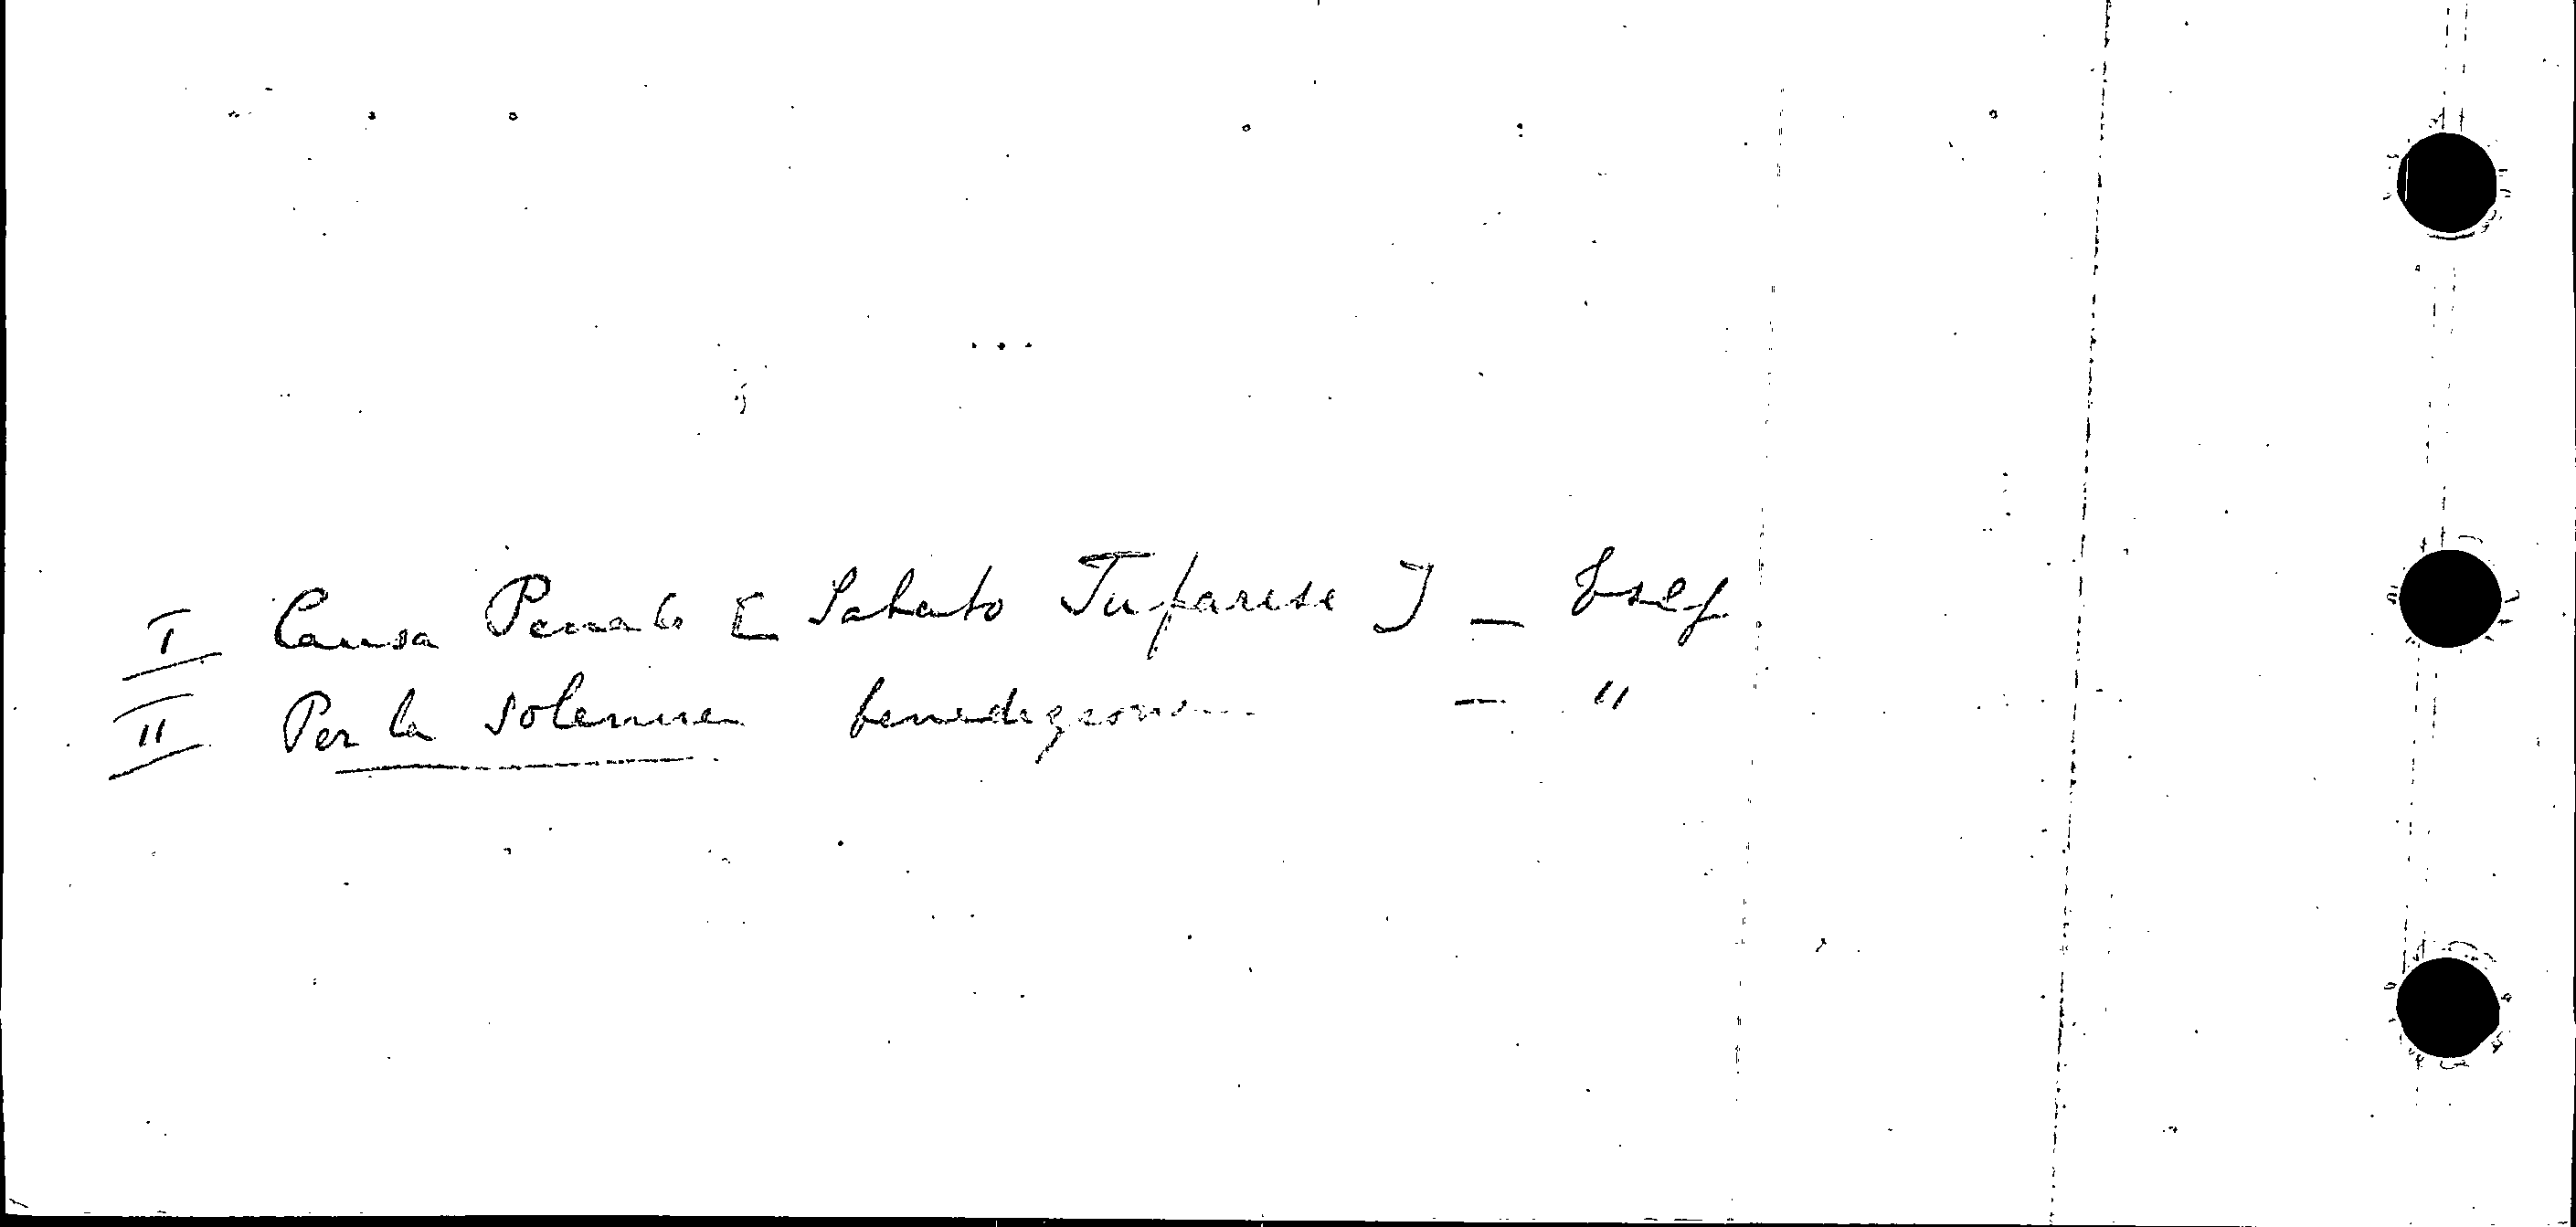 I Causa Penale [ Sabato Tufarese ] –
II Per la solenne benedizione – "